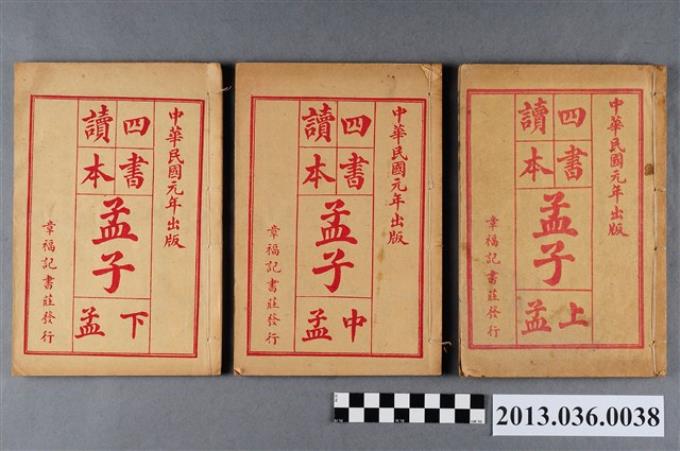 中華民國元年出版
四書
讀本
孟子
上孟
章福記書莊發行
中華民國元年出版
四書
讀本
孟子
中孟
章福記書莊發行
中華民國元年出版
四書
讀本
孟子
下孟
章福記書莊發行
2013.036.0038